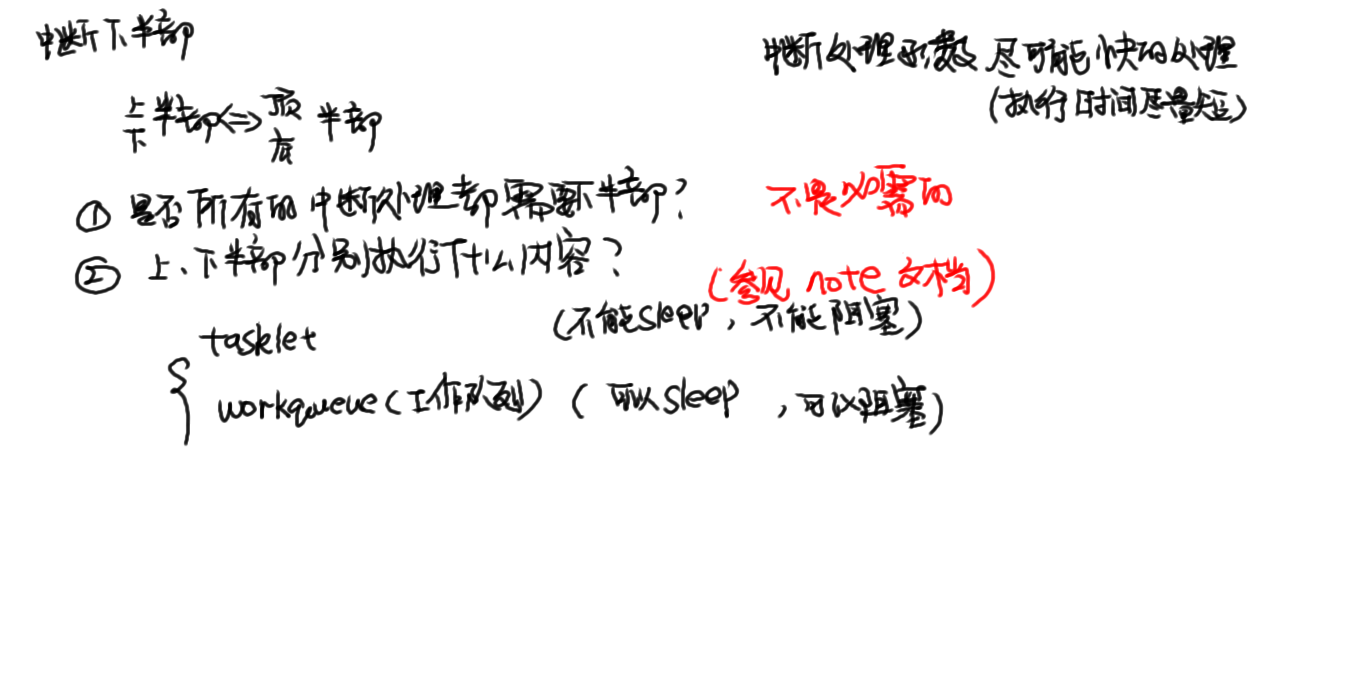 中断下半部
中断处理函数 尽可能快的处理
(执行时间尽量短)
上下半部<=>顶底半部
① 是否所有的中断处理都需要下半部? 不是必需的
② 上、下半部分别执行什么内容? (参见 note 文档)
tasklet (不能sleep, 不能阻塞)
workqueue(工作队列) (可以sleep, 可以阻塞)